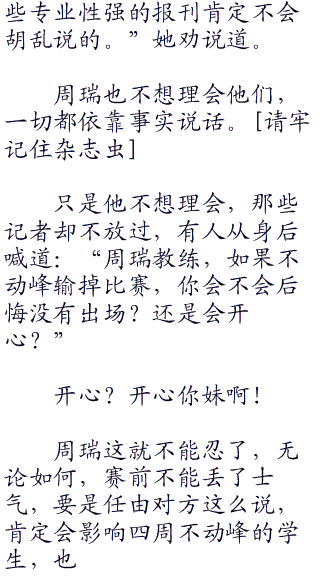 些专业性强的报刊肯定不会
胡乱说的。”她劝说道。
周瑞也不想理会他们，
一切都依靠事实说话。[请牢
记住杂志虫]
只是他不想理会，那些
记者却不放过，有人从身后
喊道：“周瑞教练，如果不
动峰输掉比赛，你会不会后
悔没有出场？还是会开
心？”
开心？开心你妹啊！
周瑞这就不能忍了，无
论如何，赛前不能丢了士
气，要是任由对方这么说，
肯定会影响四周不动峰的学
生，也